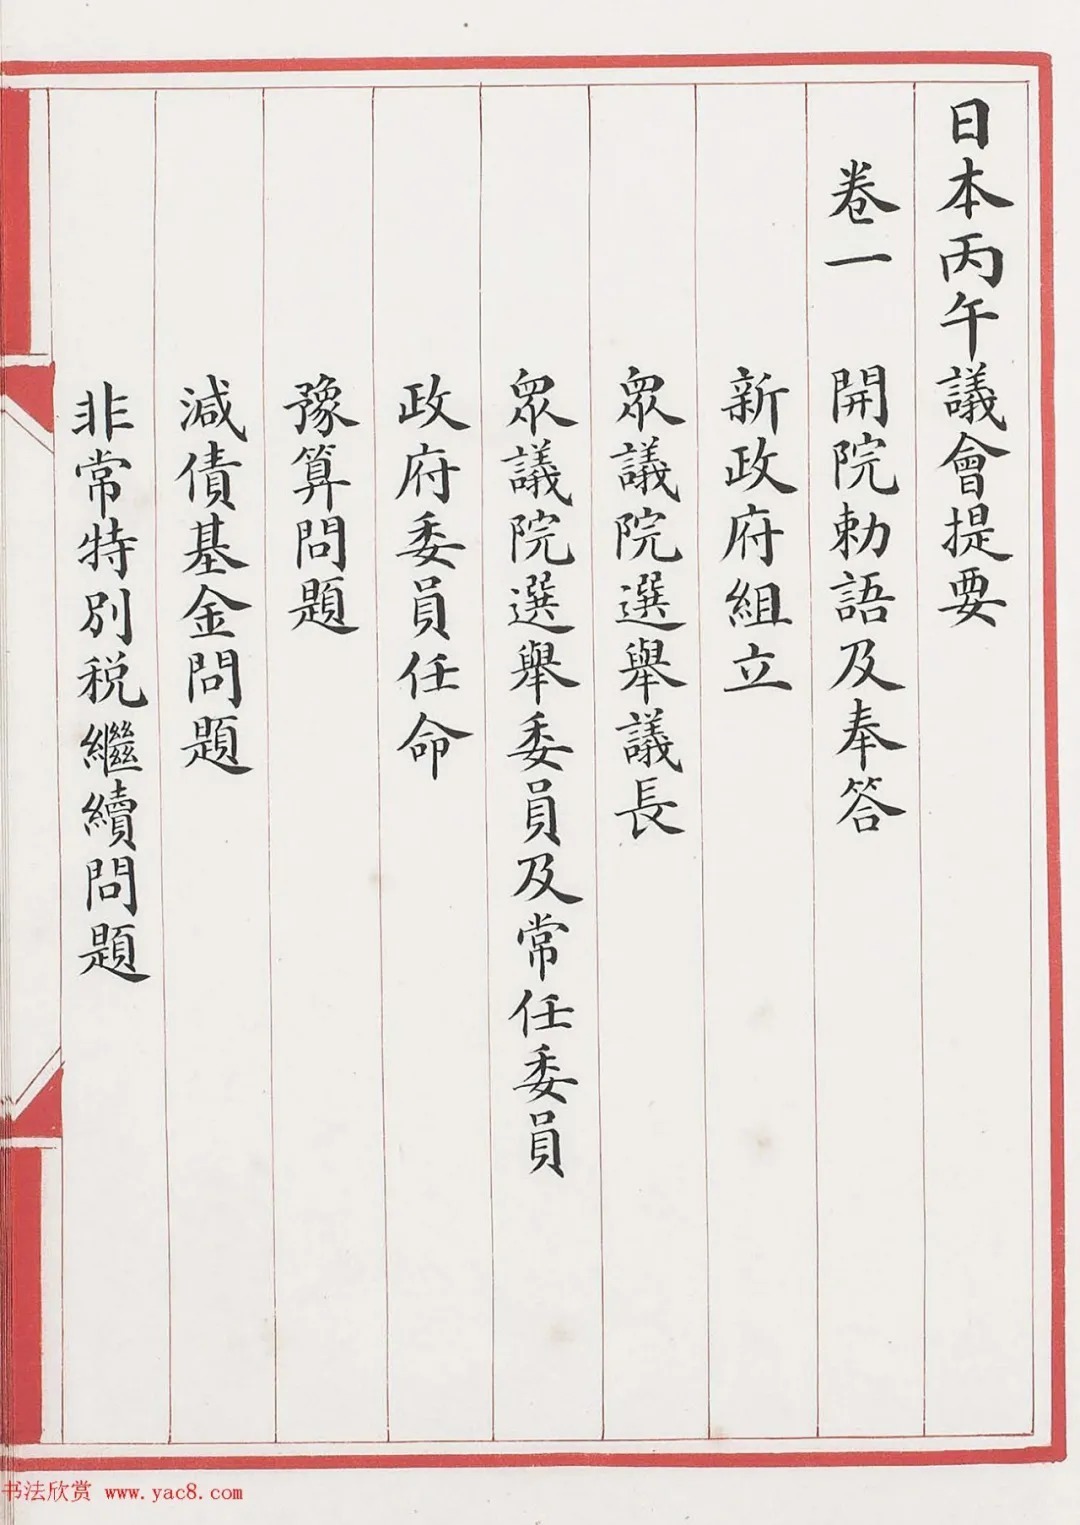 日本丙午議會提要
卷一　開院勅語及奉答
新政府組立
眾議院選舉議長
眾議院選舉委員及常任委員
政府委員任命
豫算問題
減債基金問題
非常特別税繼續問題
书法欣赏 www.yac8.com